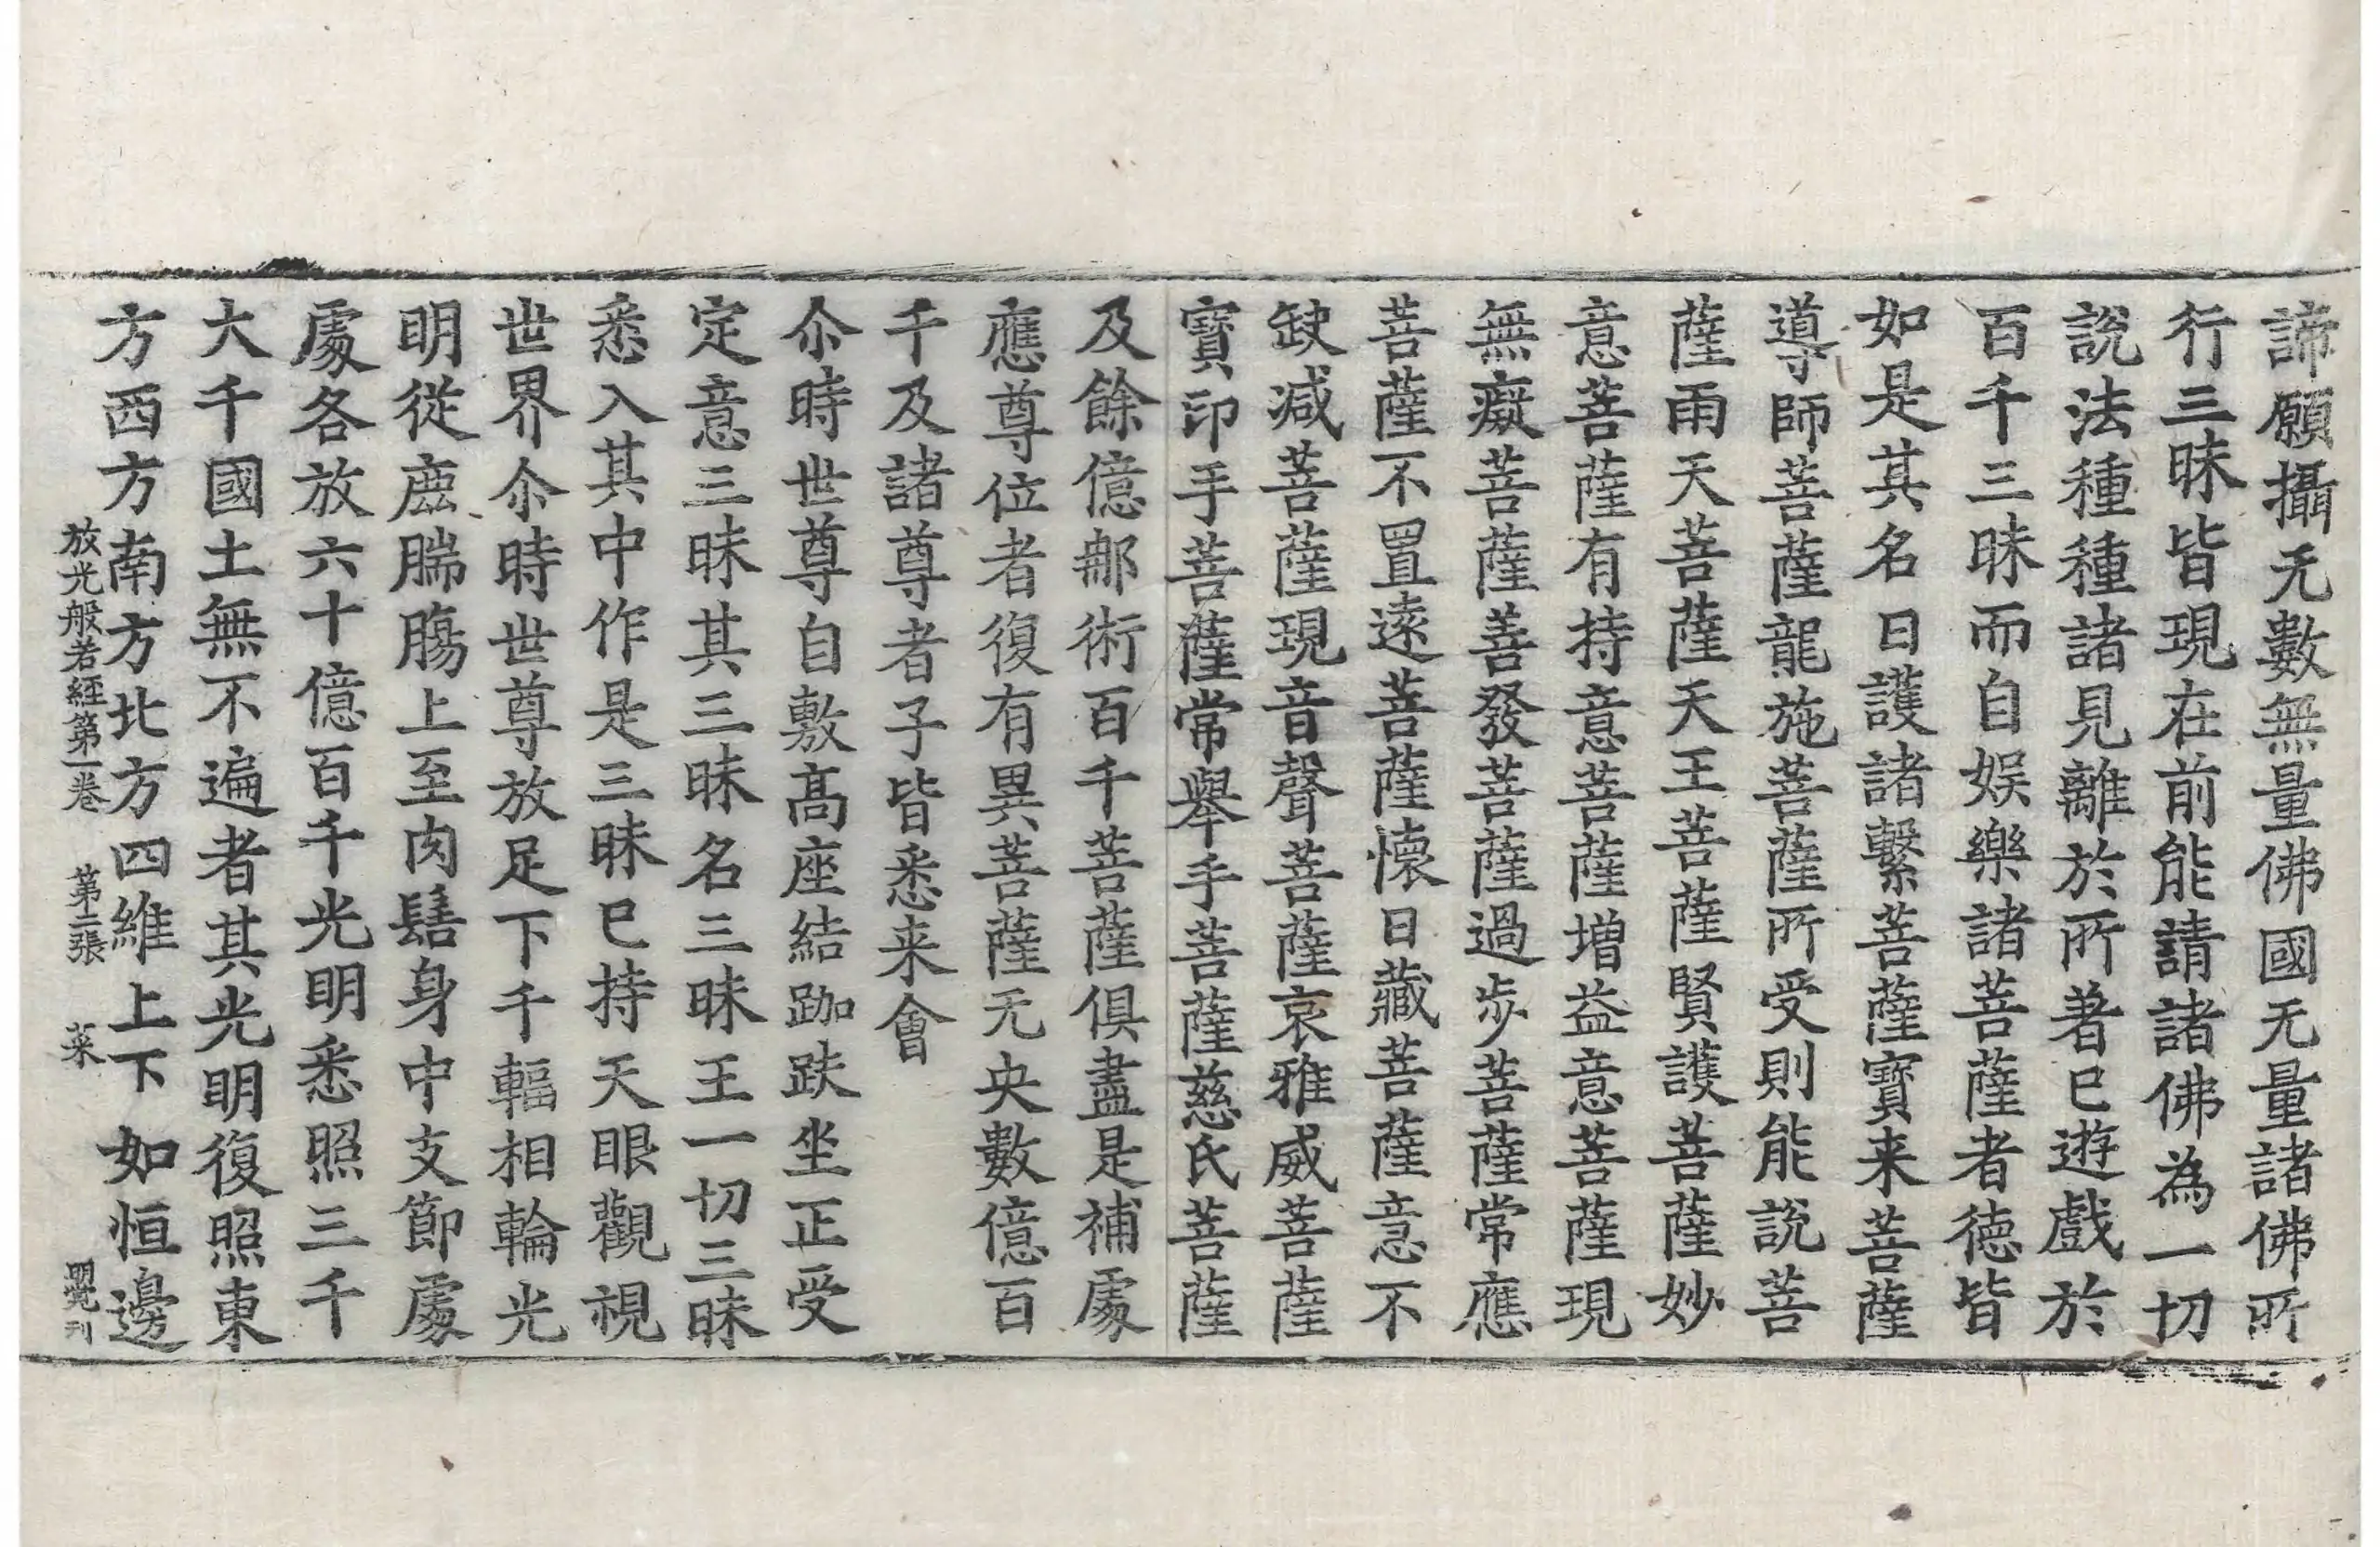 諦願攝无數無量佛國无量諸佛所
行三昧皆現在前能請諸佛為一切
說法種種諸見離於所著已遊戲於
百千三昧而自娛樂諸菩薩者德皆
如是其名曰護諸繫菩薩寶来菩薩
導師菩薩龍施菩薩所受則能說菩
薩雨天菩薩天王菩薩賢護菩薩妙
意菩薩有持意菩薩增益意菩薩現
無癡菩薩善發菩薩過步菩薩常應
菩薩不置遠菩薩懷日藏菩薩意不
缺减菩薩現音聲菩薩哀雅威菩薩
寶印手菩薩常舉手菩薩慈氏菩薩
及餘億那術百千菩薩俱盡是補處
應尊位者復有異菩薩无央數億百
千及諸尊者子皆悉来會
尒時世尊自敷高座結跏趺坐正受
定意三昧其三昧名三昧王一切三昧
悉入其中作是三昧已持天眼觀視
世界尒時世尊放足下千輻相輪光
明從鹿腨膓上至肉髻身中支節處
處各放六十億百千光明悉照三千
大千國土無不遍者其光明復照東
方西方南方北方四維上下如恒邊
放光般若經第一卷 第二張 菜 明覺刊